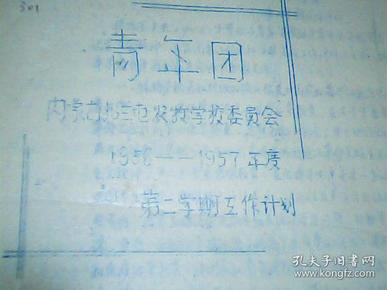 301
青年团
内蒙古扎兰屯农牧学校委员会
1956——1957年度
第二学期工作计划
孔夫子旧书网